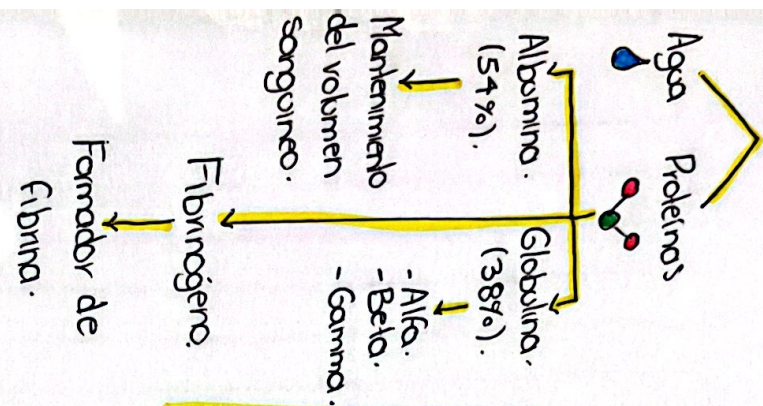 Agua
Proteínas
Albumina.
(54%).
Mantenimiento
del volumen
sanguíneo.
Globulina.
(38%).
-Alfa.
-Beta.
-Gamma.
Fibrinógeno.
Formador de
fibrina.